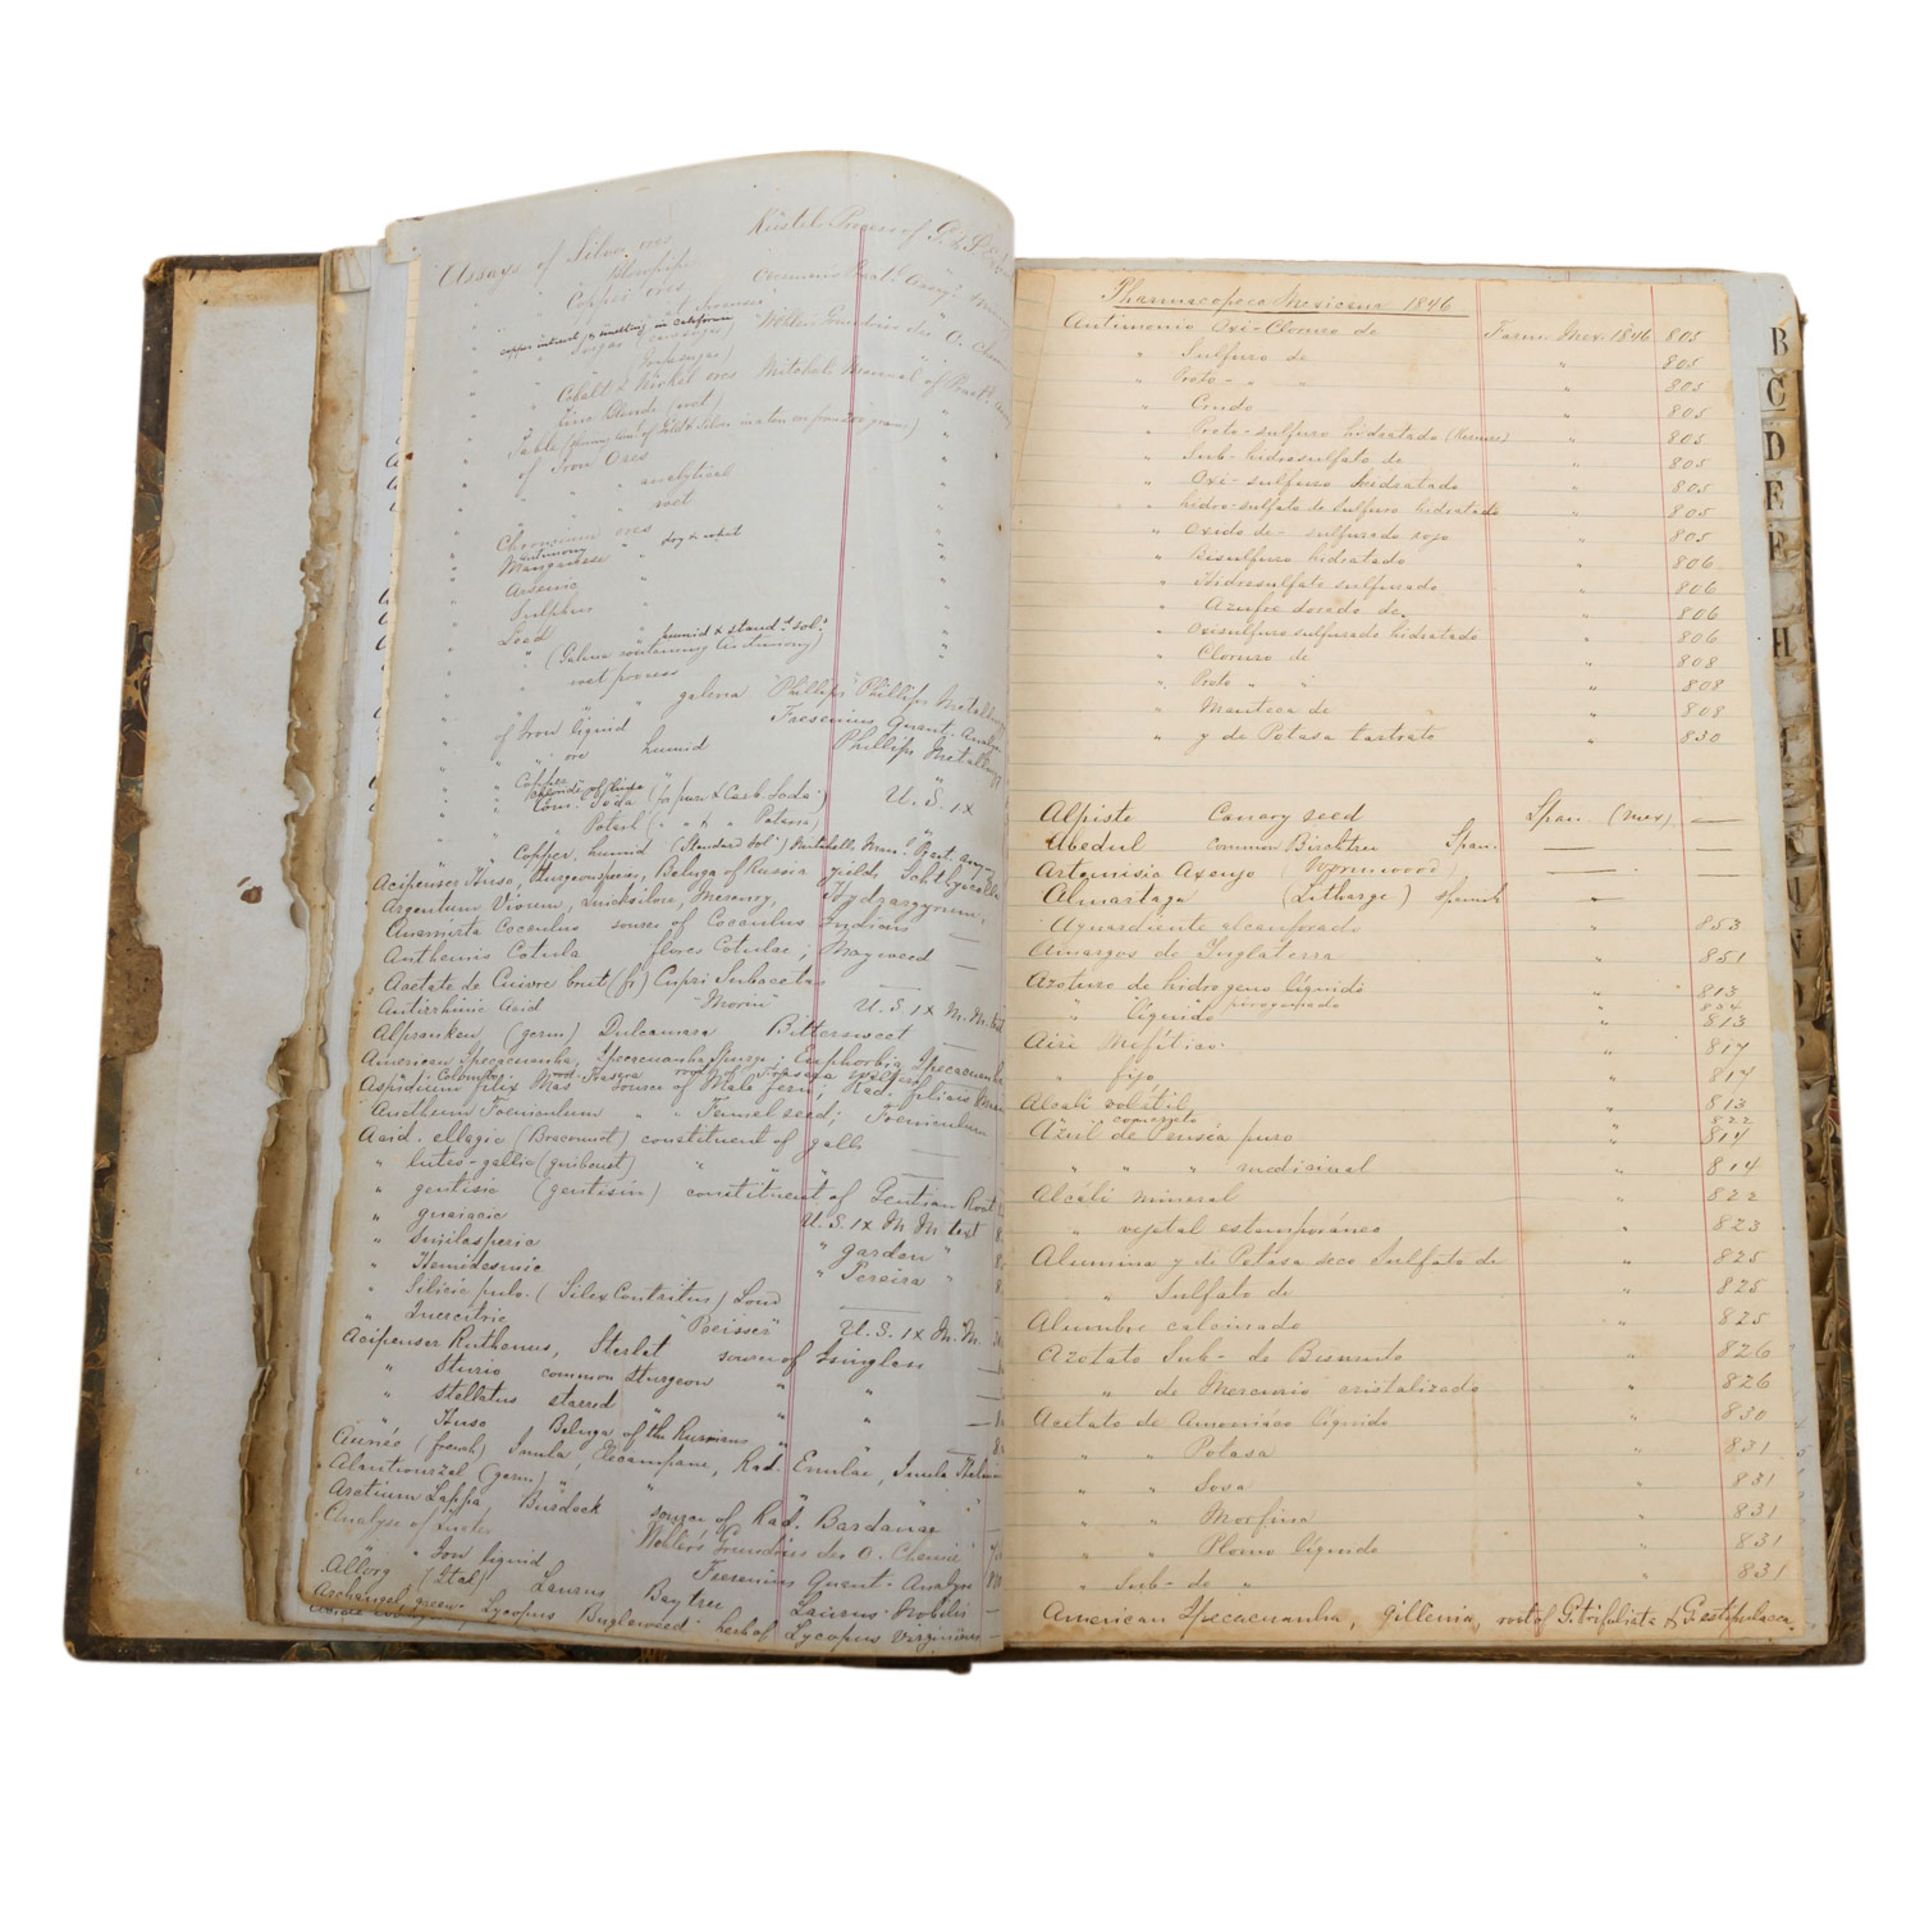 Assays of Silver ores Küstel's Process of G. & S. Ex
" " Blowpipe
" " Copper ores
copper in trench, & smelting in California
" " Cobalt & Nickel ores Mitchel's Manual of Pract.
" " Zinc Blende (wet) "
" Table of Gold & Silver in a ton ore from 200 grains) "
" of Iron Ores "
" " " " analytical "
" " " " wet "
" Chromium ores "
antimony "
" Manganese " dry & wet "
" Arsenic " "
" Sulphur " "
" Lead " humid & stand.d sol.s "
" " (Galena containing Antimony) "
" " wet process "
" " " " galena "Phillips" Phillips Metallurgy
" of Iron liquid Fresenius Quant. Analys
" " " ore humid Phillips Metallurgy
" " Copper "
chloride of
" " Com. Soda (for pure & Carb. Soda) U. S. IX
" " " Potash ( " " & " Potassa) "
" " Copper, humid (Standard Sol.) Mitchell's Man.l Pract. Assy
Acipenser Huso, Sturgeon species, Beluga of Russia yields Ichthyocolla
Argentum Vivum, Quicksilver, Mercury, Hydrargyrum,
Anamirta Cocculus source of Cocculus Indicus —
Anthemis Cotula flores Cotulae; Mayweed —
Acetate de Cuivre brut (fr) Cupri Subacetas —
Antirrhinic Acid "Morin" U. S. IX M. M. text
Alpranken (germ) Dulcamara Bittersweet —
American Ipecacuanha, Ipecacuanha Spurge; Euphorbia Ipecacuanha
" Colombo root Frasera root of Frasera Walteri
Aspidium filix Mas source of Male fern; Rad. filicis Maris
Anethum Foeniculum " " Fennel seed; Foeniculum
Acid. ellagic (Braconnot) constituent of galls —
" luteo-gallic (guibourt) " " " —
" gentisic (gentisin) constituent of Gentian Root
" guaiacic U. S. IX M M text
" Smilasperic " garden "
" Hemidesmic " Pereira "
" Silicic pulv. (Silex Contritus) Lond —
" Quercitric "Preisser" U. S. IX M. M.
Acipenser Ruthenus, Sterlet source of Isinglass —
" Sturio common Sturgeon " "
" Stellatus starred " "
" Huso Beluga of the Russians "
Aunée (french) Inula, Elecampane, Rad. Enulae, Inula Helen
Alantwurzel (germ) " " " "
Arctium Lappa, Burdock source of Rad. Bardanae —
Analyse of Wohler's Grundriss der O. Chemie
" Iron liquid Fresenius Quant. Analyse
Alloro (Ital) Laurus Baytree Laurus Nobilis —
Archangel, green Lycopus Bugleweed herb of Lycopus Virginicus —
Pharmacopeca Mexicana 1846
Antimonio Oxi-Cloruro de Farm. Mex. 1846 805
" Sulfuro de " 805
" Proto- " " " 805
" Crudo " 805
" Proto-sulfuro hidratado (Kermes) " 805
" Sub-hidrosulfato de " 805
" Oxi-sulfuro hidratado " 805
" hidro-sulfato de sulfuro hidratado " 805
" Oxido de- sulfurado rojo " 805
" Bisulfuro hidratado " 806
" Hidrosulfato sulfurado " 806
" Azufre dorado de " 806
" Oxisulfuro sulfurado hidratado " 806
" Cloruro de " 808
" Proto " " " 808
" Manteca de " 808
" y de Potasa tartrato " 830
Alpiste Canary seed Span. (mex) —
Abedul common Birchtree Span. — —
Artemisia Axenjo (Wormwood) — —
Almartaga (Litharge) spanish —
Aguardiente alcanforado " 853
Amargos de Inglaterra " 851
Azoturo de hidrogeno líquido " 813
pirogenado 854
" líquido " 813
Aire Mefítico " 817
" fijo " 817
Alcali volátil " 813
" " concreto 822
Azul de Prusia puro " 814
" " " medicinal " 814
Alcáli mineral " 822
" vejetal estemporáneo " 823
Alumina y de Potasa seco Sulfato de " 825
" Sulfato de " 825
Alumbre calcinado " 825
Azotato Sub- de Bismuto " 826
" de Mercurio cristalizado " 826
Acetato de Amoniáco líquido " 830
" " Potasa " 831
" " Sosa " 831
" " Morfina " 831
" " Plomo líquido " 831
" Sub- de " " 831
American Ipecacuanha, Gillenia, root of G. trifoliata & G. stipulacea
B
C
D
E
F
H
M
N
O